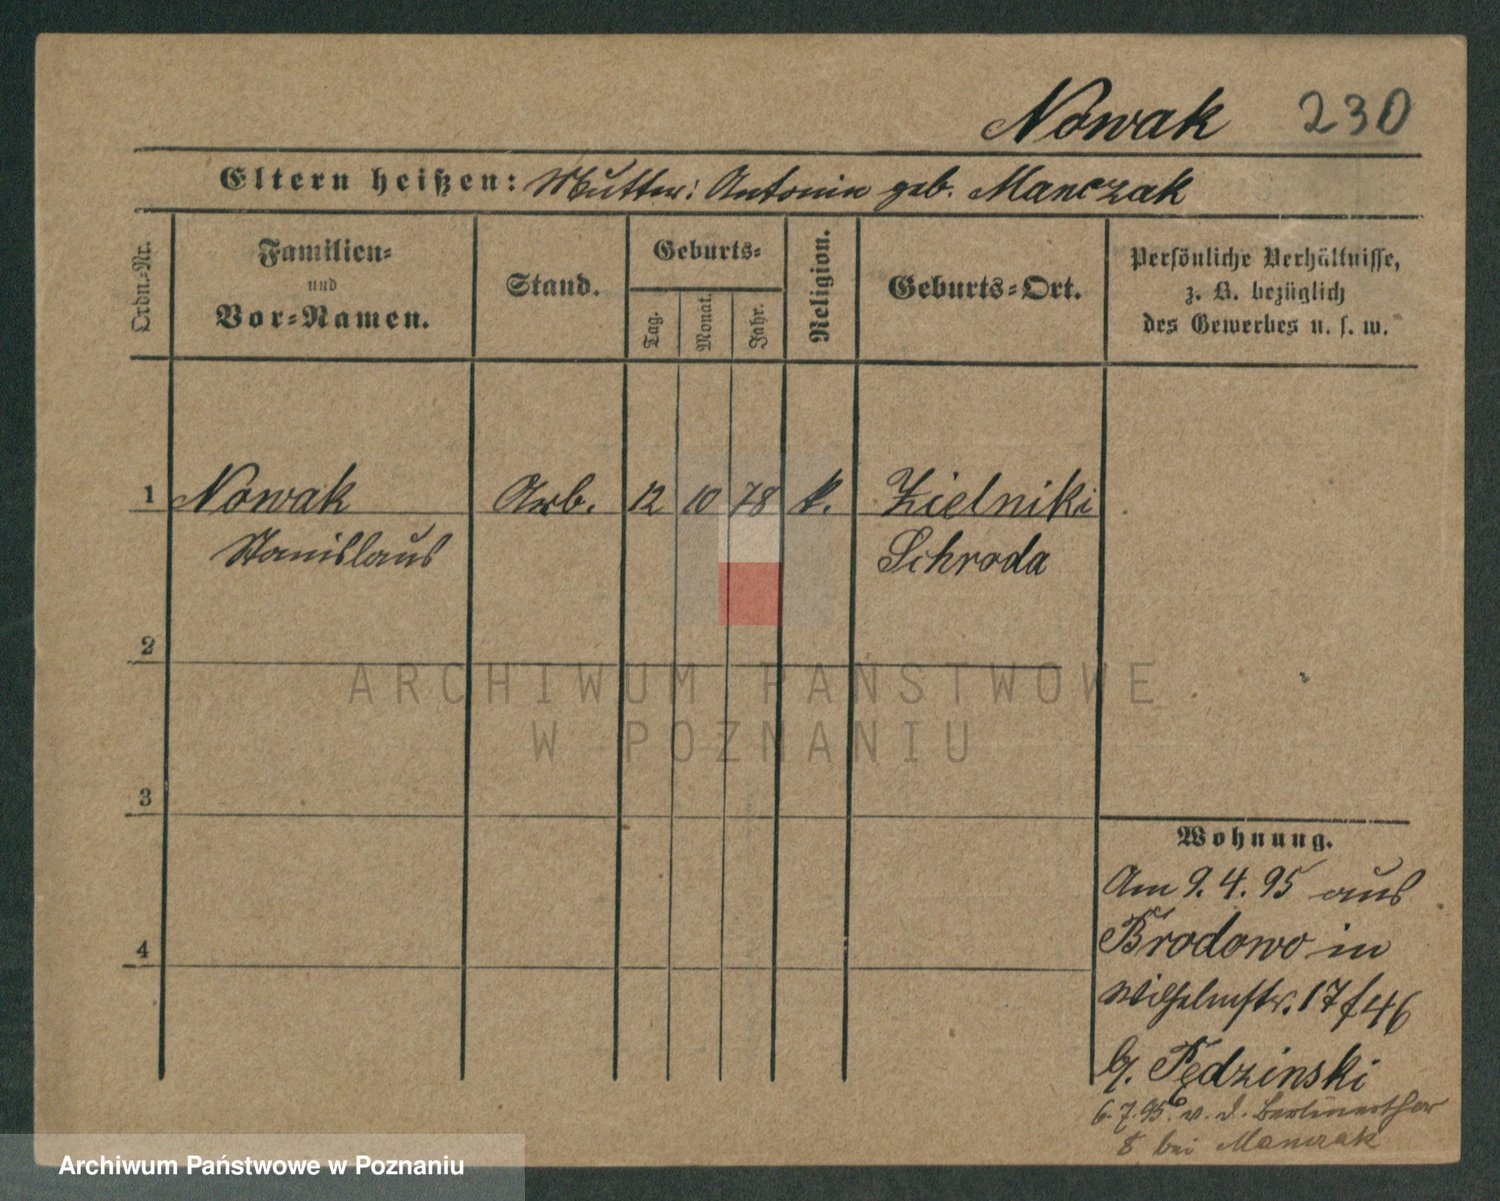 Nowak 230
Eltern heißen: Mutter: Antonin geb. Manczak
Ordn.-Nr.
Familien-
und
Vor-Namen.
Stand.
Geburts-
Tag.
Monat.
Jahr.
Religion.
Geburts-Ort.
Persönliche Verhältnisse,
z. B. bezüglich
des Gewerbes u. s. w.
1 Nowak Arb. 12 10 78 k. Zielniki
Stanislaus Schroda
2
ARCHIWUM PAŃSTWOWE
W POZNANIU
3
Wohnung.
Am 9.4.95 aus
Brodowo in
4
Wilhelmstr. 17 f 46
b/. Fędzinski
6.7.95. n. d. Berlinerthor
8 bei Manczak
Archiwum Państwowe w Poznaniu